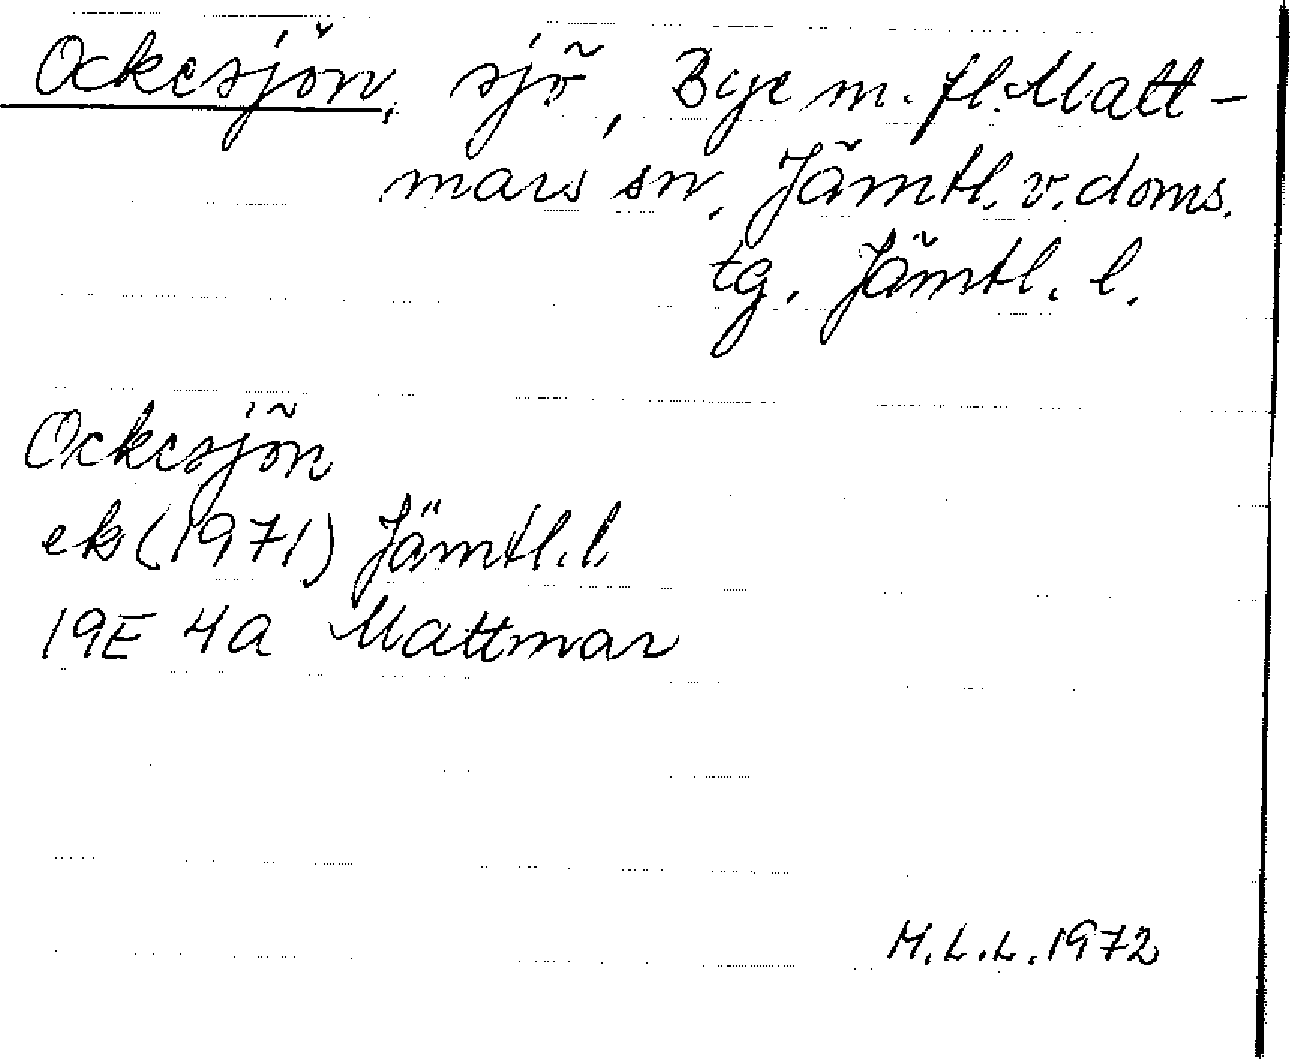 Ockesjön, sjö, Bye m. fl. Matt-
mars sn, Jämtl. v. doms.
tg. Jämtl. l.
Ockesjön
ek (1971) Jämtl. l.
19E 4a Mattmar
M.L.L. 1972